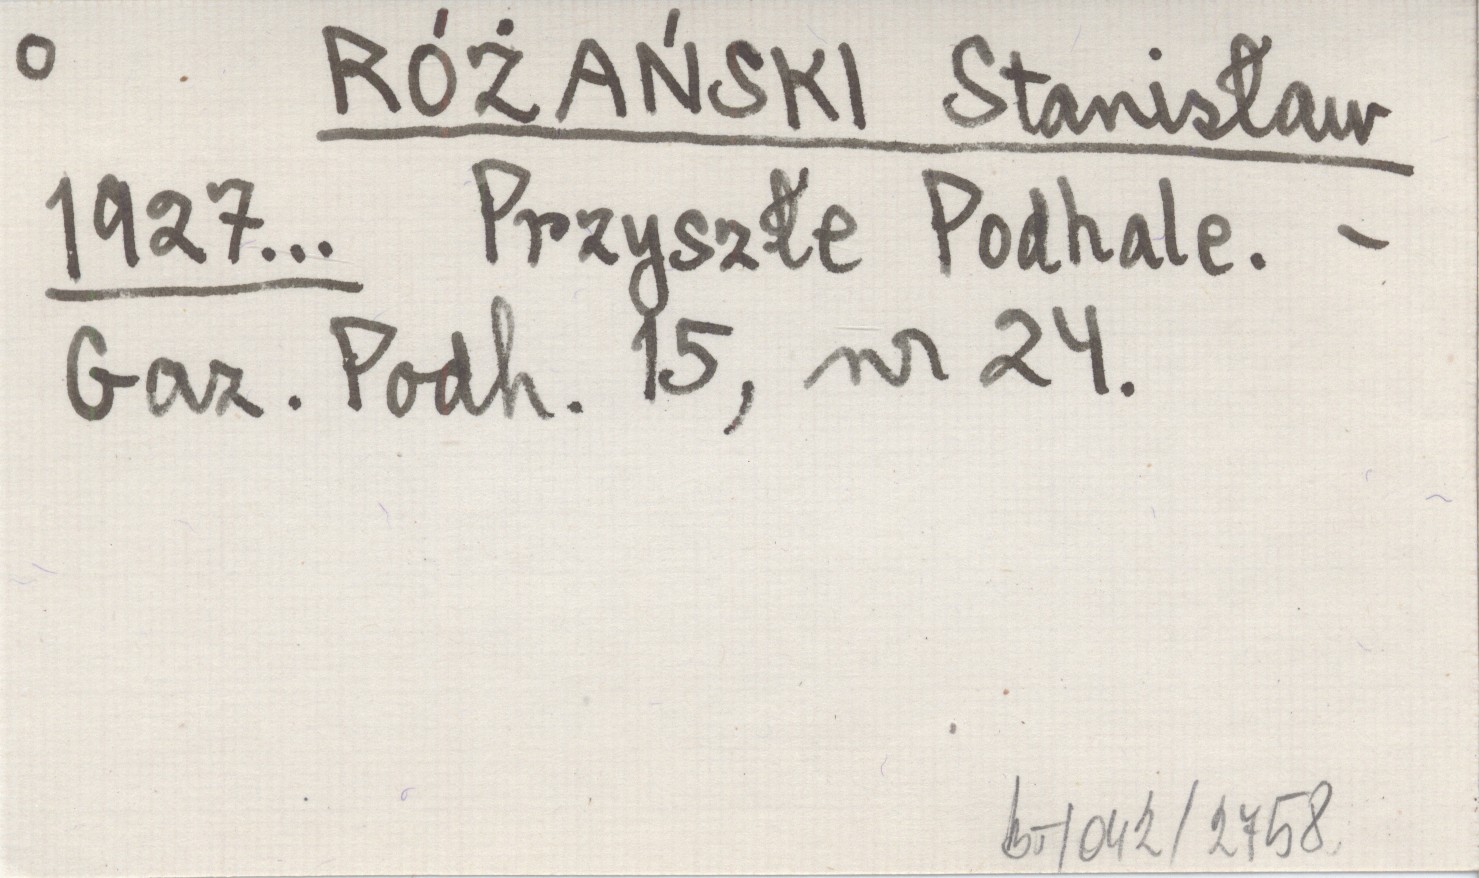 o RÓŻAŃSKI Stanisław
1927... Przyszłe Podhale. -
Gaz. Podh. 15, nr 24.
/042/2758